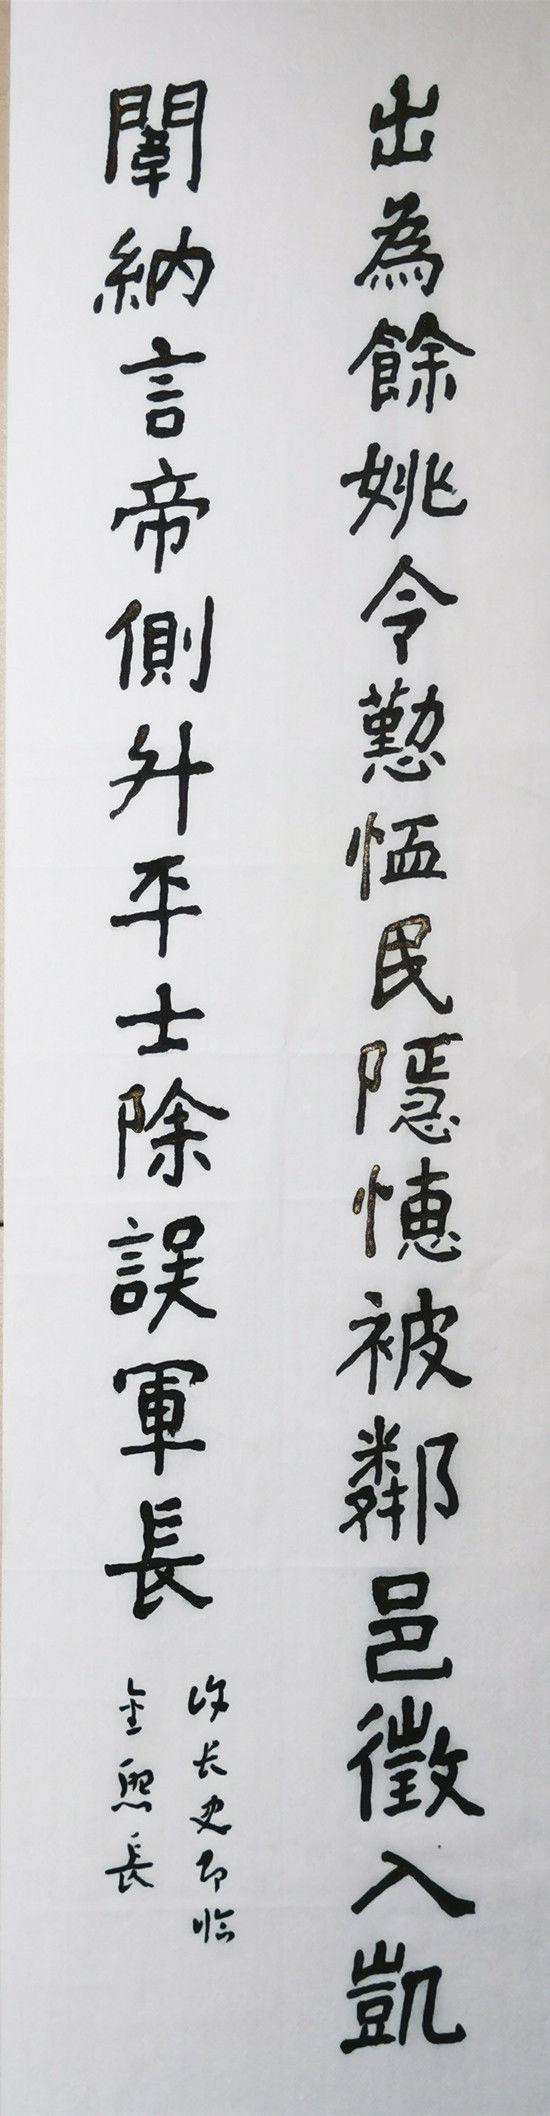 出為餘姚令懃恤民隱憓被鄰邑徵入凱
闈納言帝側外平士除誤軍長
长史即临
金熙長